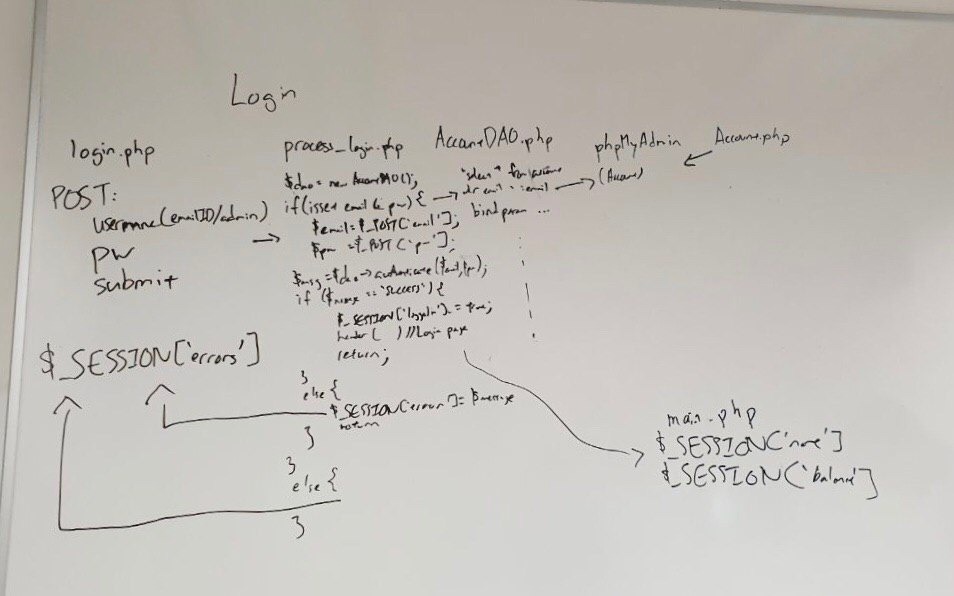 Login
login.php
POST:
username(emailID/admin)
pw
submit
$_SESSION['errors']
process_login.php
$dao = new AccountDAO();
if(isset email & pw) {
$email=$_POST['email'];
$pw =$_POST['pw'];
$msg=$dao->authenticate($email,$pw);
if ($message == 'success') {
$_SESSION['loggedin'] = true;
header( ) //Login page
return;
}
else {
$_SESSION['errors']= $message
return
}
}
else {
}
AccountDAO.php
"select * from account
email = :email
bindparam ...
phpMyAdmin
(Account)
Account.php
main.php
$_SESSION['name']
$_SESSION['balance']